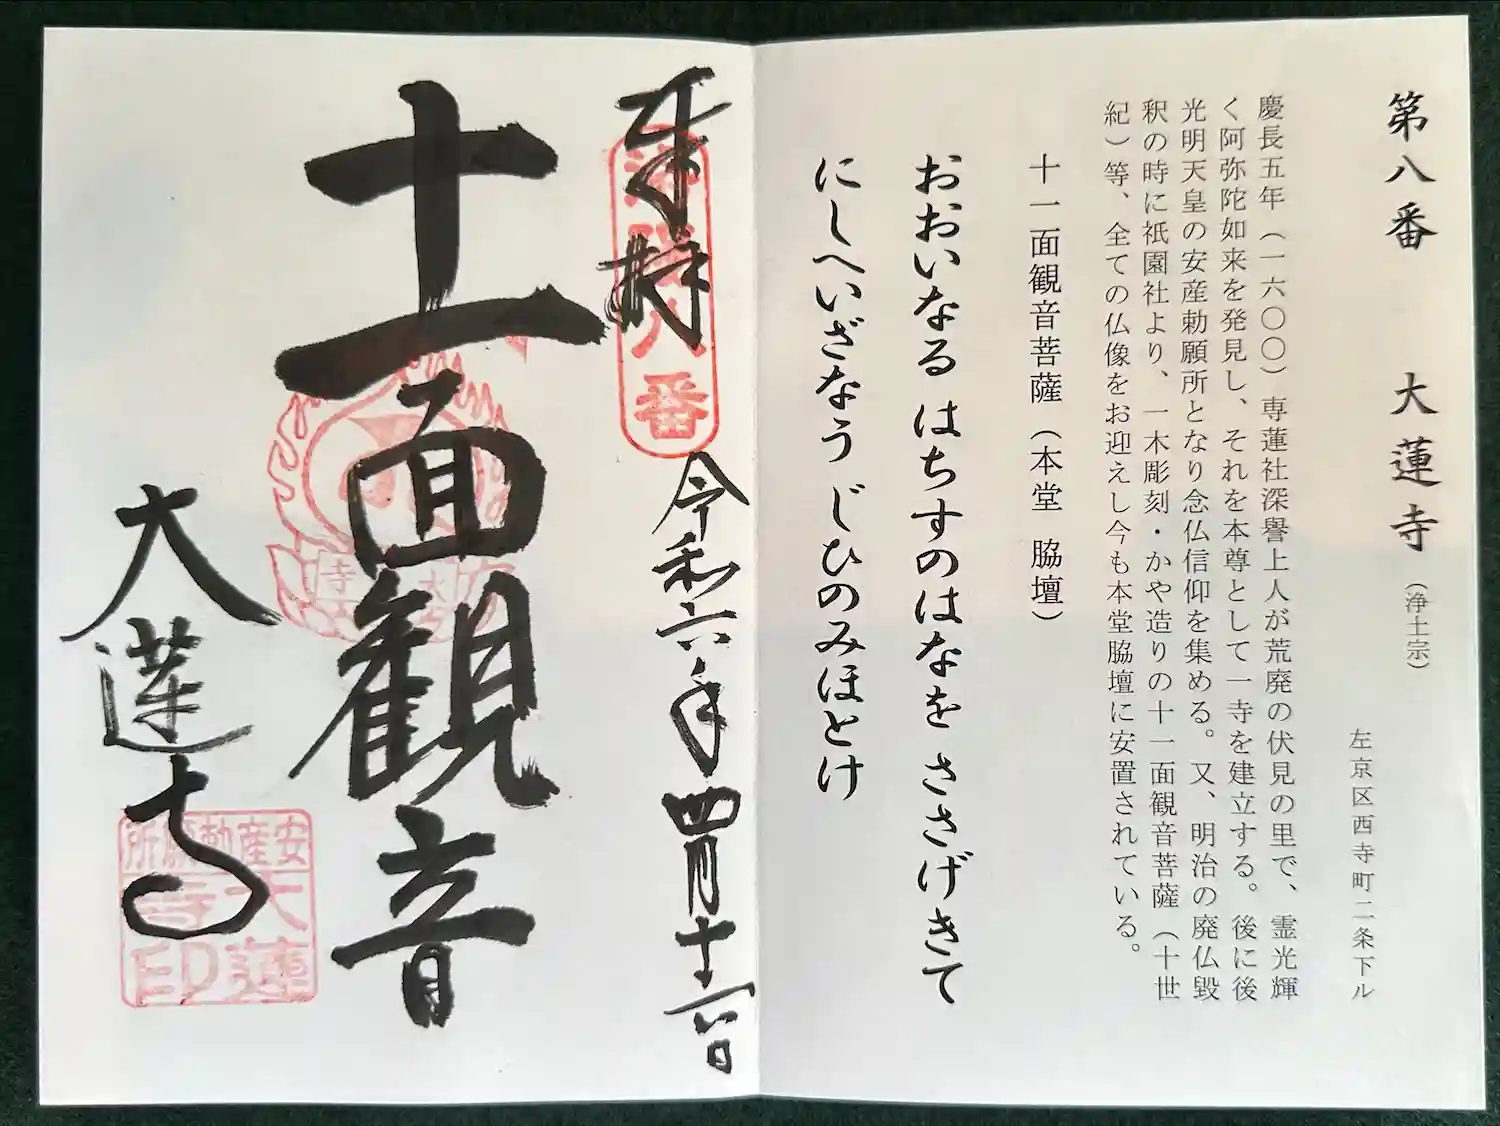 第八番 大蓮寺(浄土宗)
左京区西寺町二条下ル
慶長五年(一六〇〇)専蓮社深誉上人が荒廃の伏見の里で、霊光輝
く阿弥陀如来を発見し、それを本尊として一寺を建立する。後に後
光明天皇の安産勅願所となり念仏信仰を集める。又、明治の廃仏毀
釈の時に祇園社より、一木彫刻・かや造りの十一面観音菩薩(十世
紀)等、全ての仏像をお迎えし今も本堂脇壇に安置されている。
十一面観音菩薩(本堂 脇壇)
おおいなる はちすのはなを ささげきて
にしへいざなう じひのみほとけ
奉拝
八番
令和六年四月十一日
十一面観音
大蓮寺
安産勅願所
大蓮
寺印